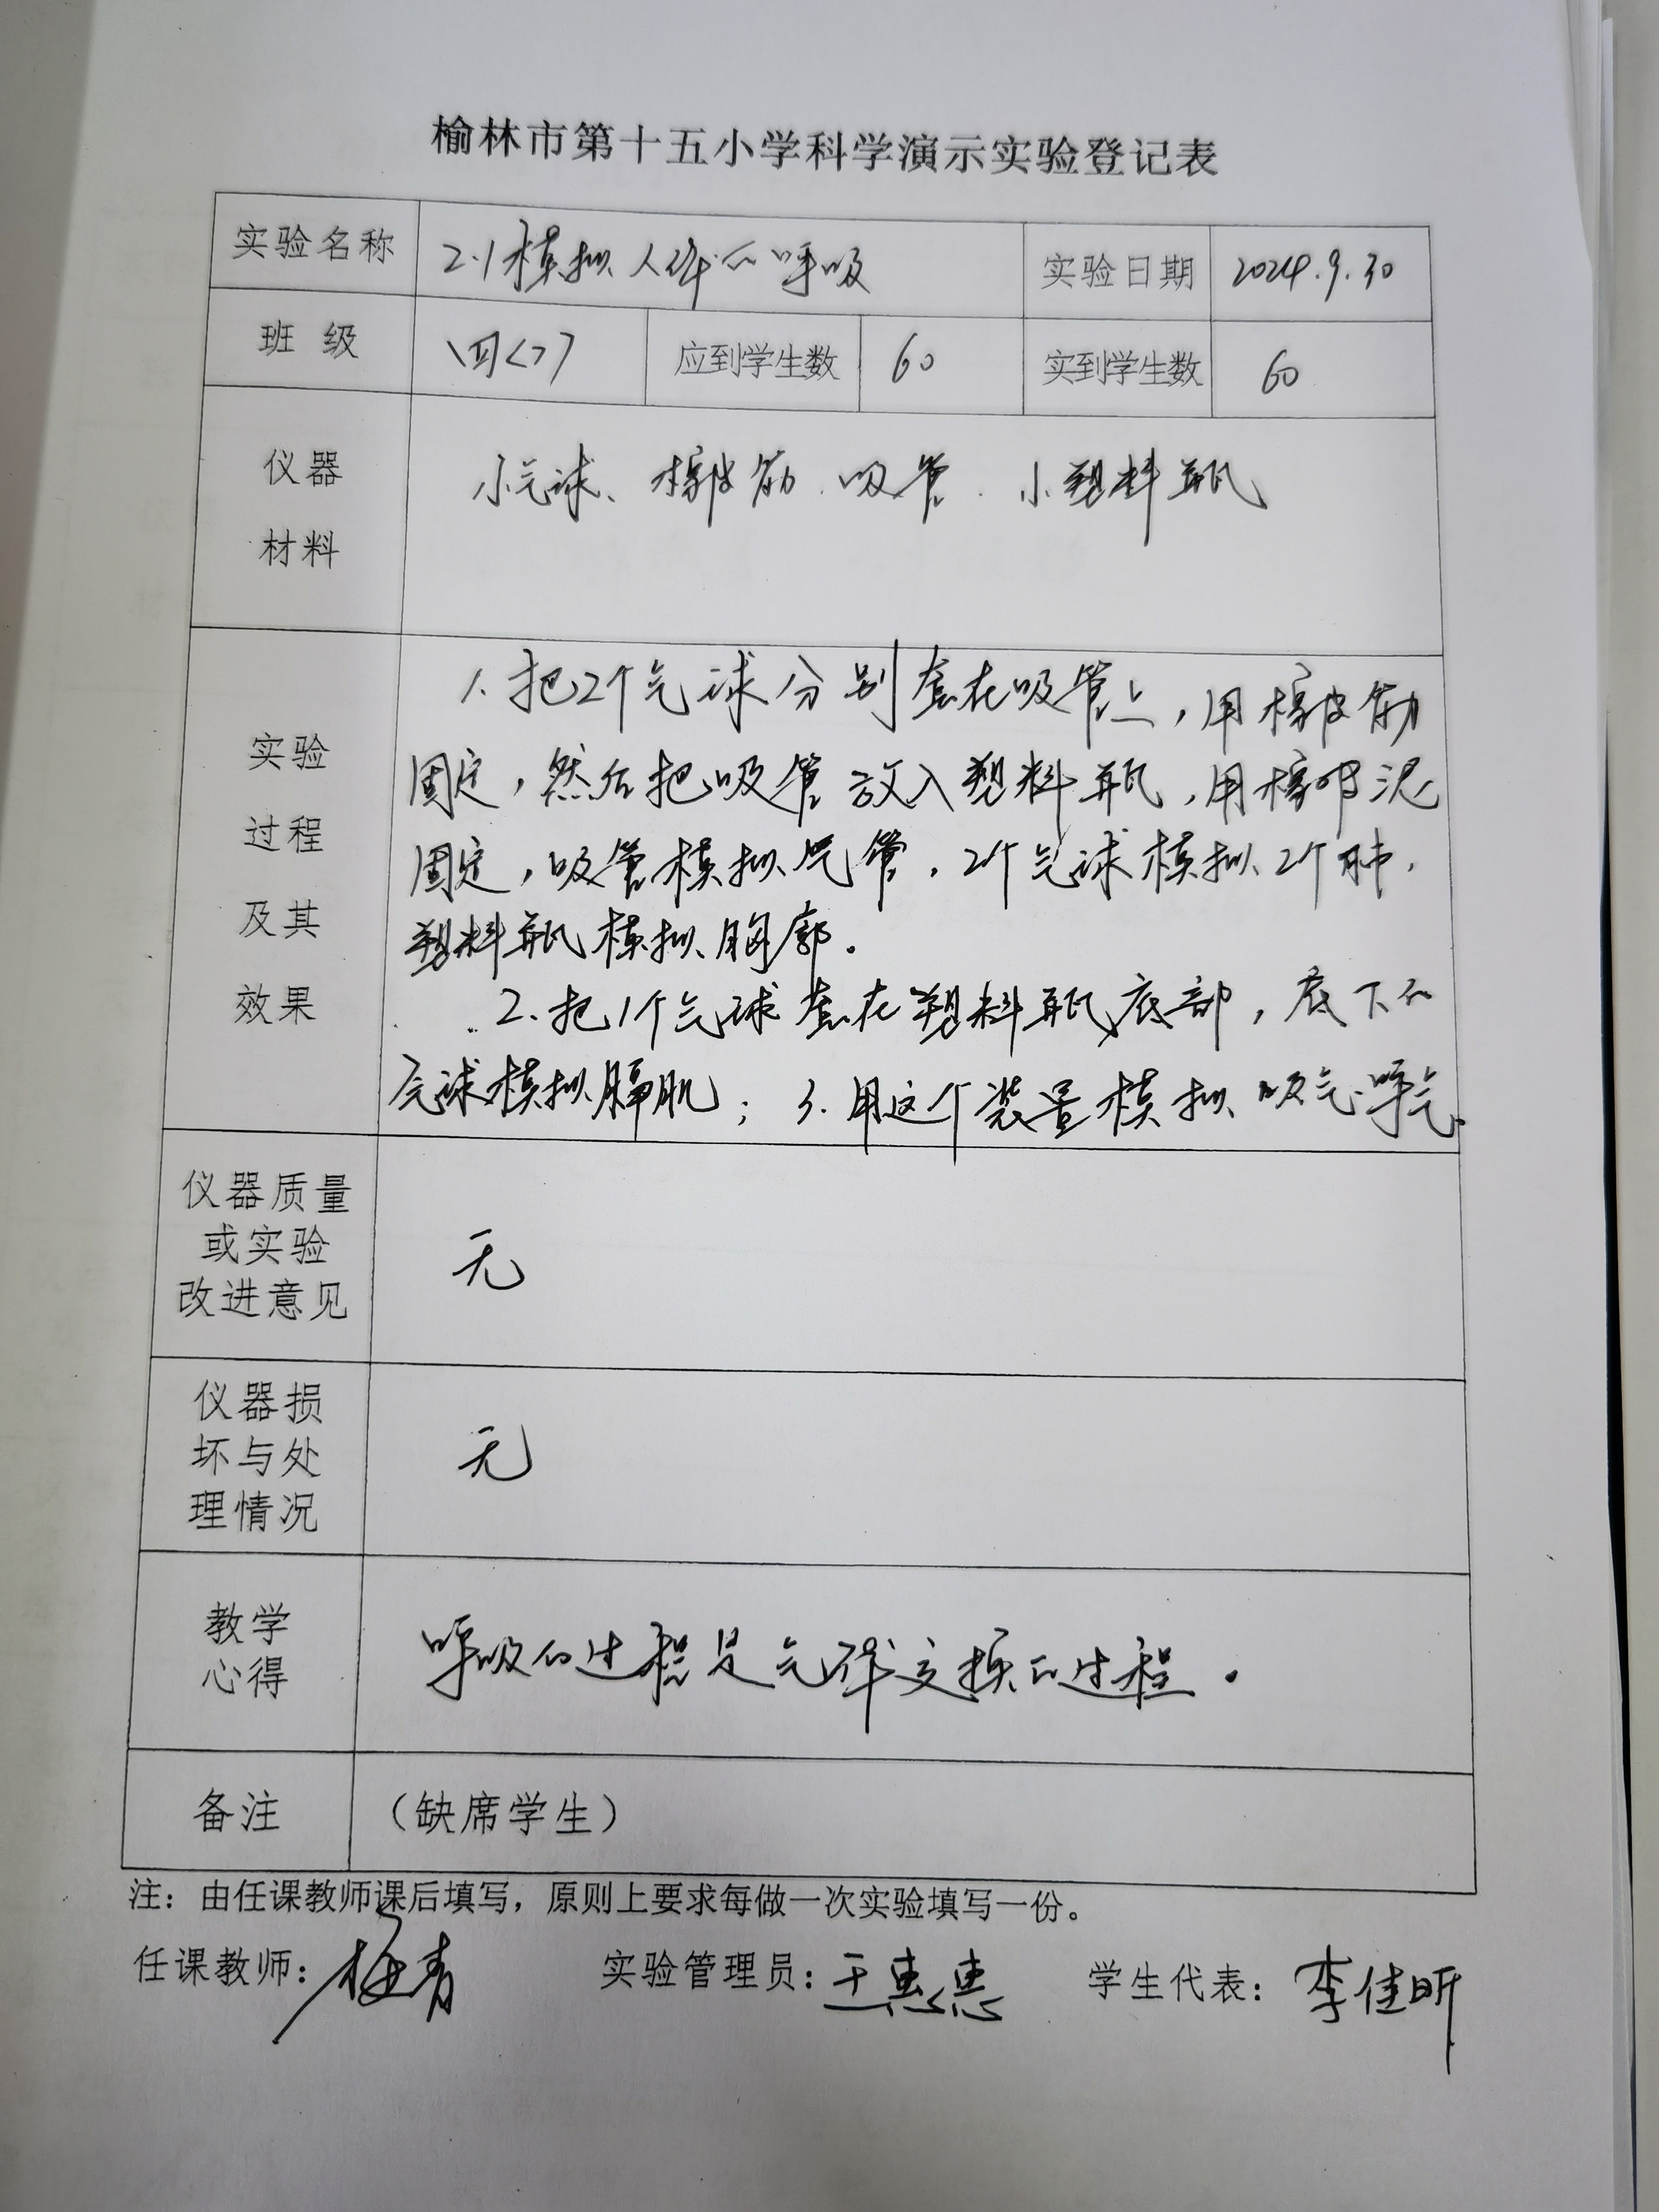 榆林市第十五小学科学演示实验登记表
实验名称 2.1模拟人体的呼吸 实验日期 2024.9.30
班 级 四<7> 应到学生数 60 实到学生数 60
仪器 小气球、橡皮筋、吸管、小塑料瓶
材料
1.把2个气球分别套在吸管上,用橡皮筋
实验
固定,然后把吸管放入塑料瓶,用橡皮泥
过程
固定,吸管模拟气管,2个气球模拟2个肺,
及其
塑料瓶模拟胸廓。
效果
2.把1个气球套在塑料瓶底部,底下的
气球模拟膈肌;3.用这个装置模拟吸气、呼气.
仪器质量
或实验 无
改进意见
仪器损
坏与处 无
理情况
教学 呼吸的过程是气体交换的过程。
心得
备注 (缺席学生)
注:由任课教师课后填写,原则上要求每做一次实验填写一份。
任课教师: 实验管理员:王惠惠 学生代表:李佳昕